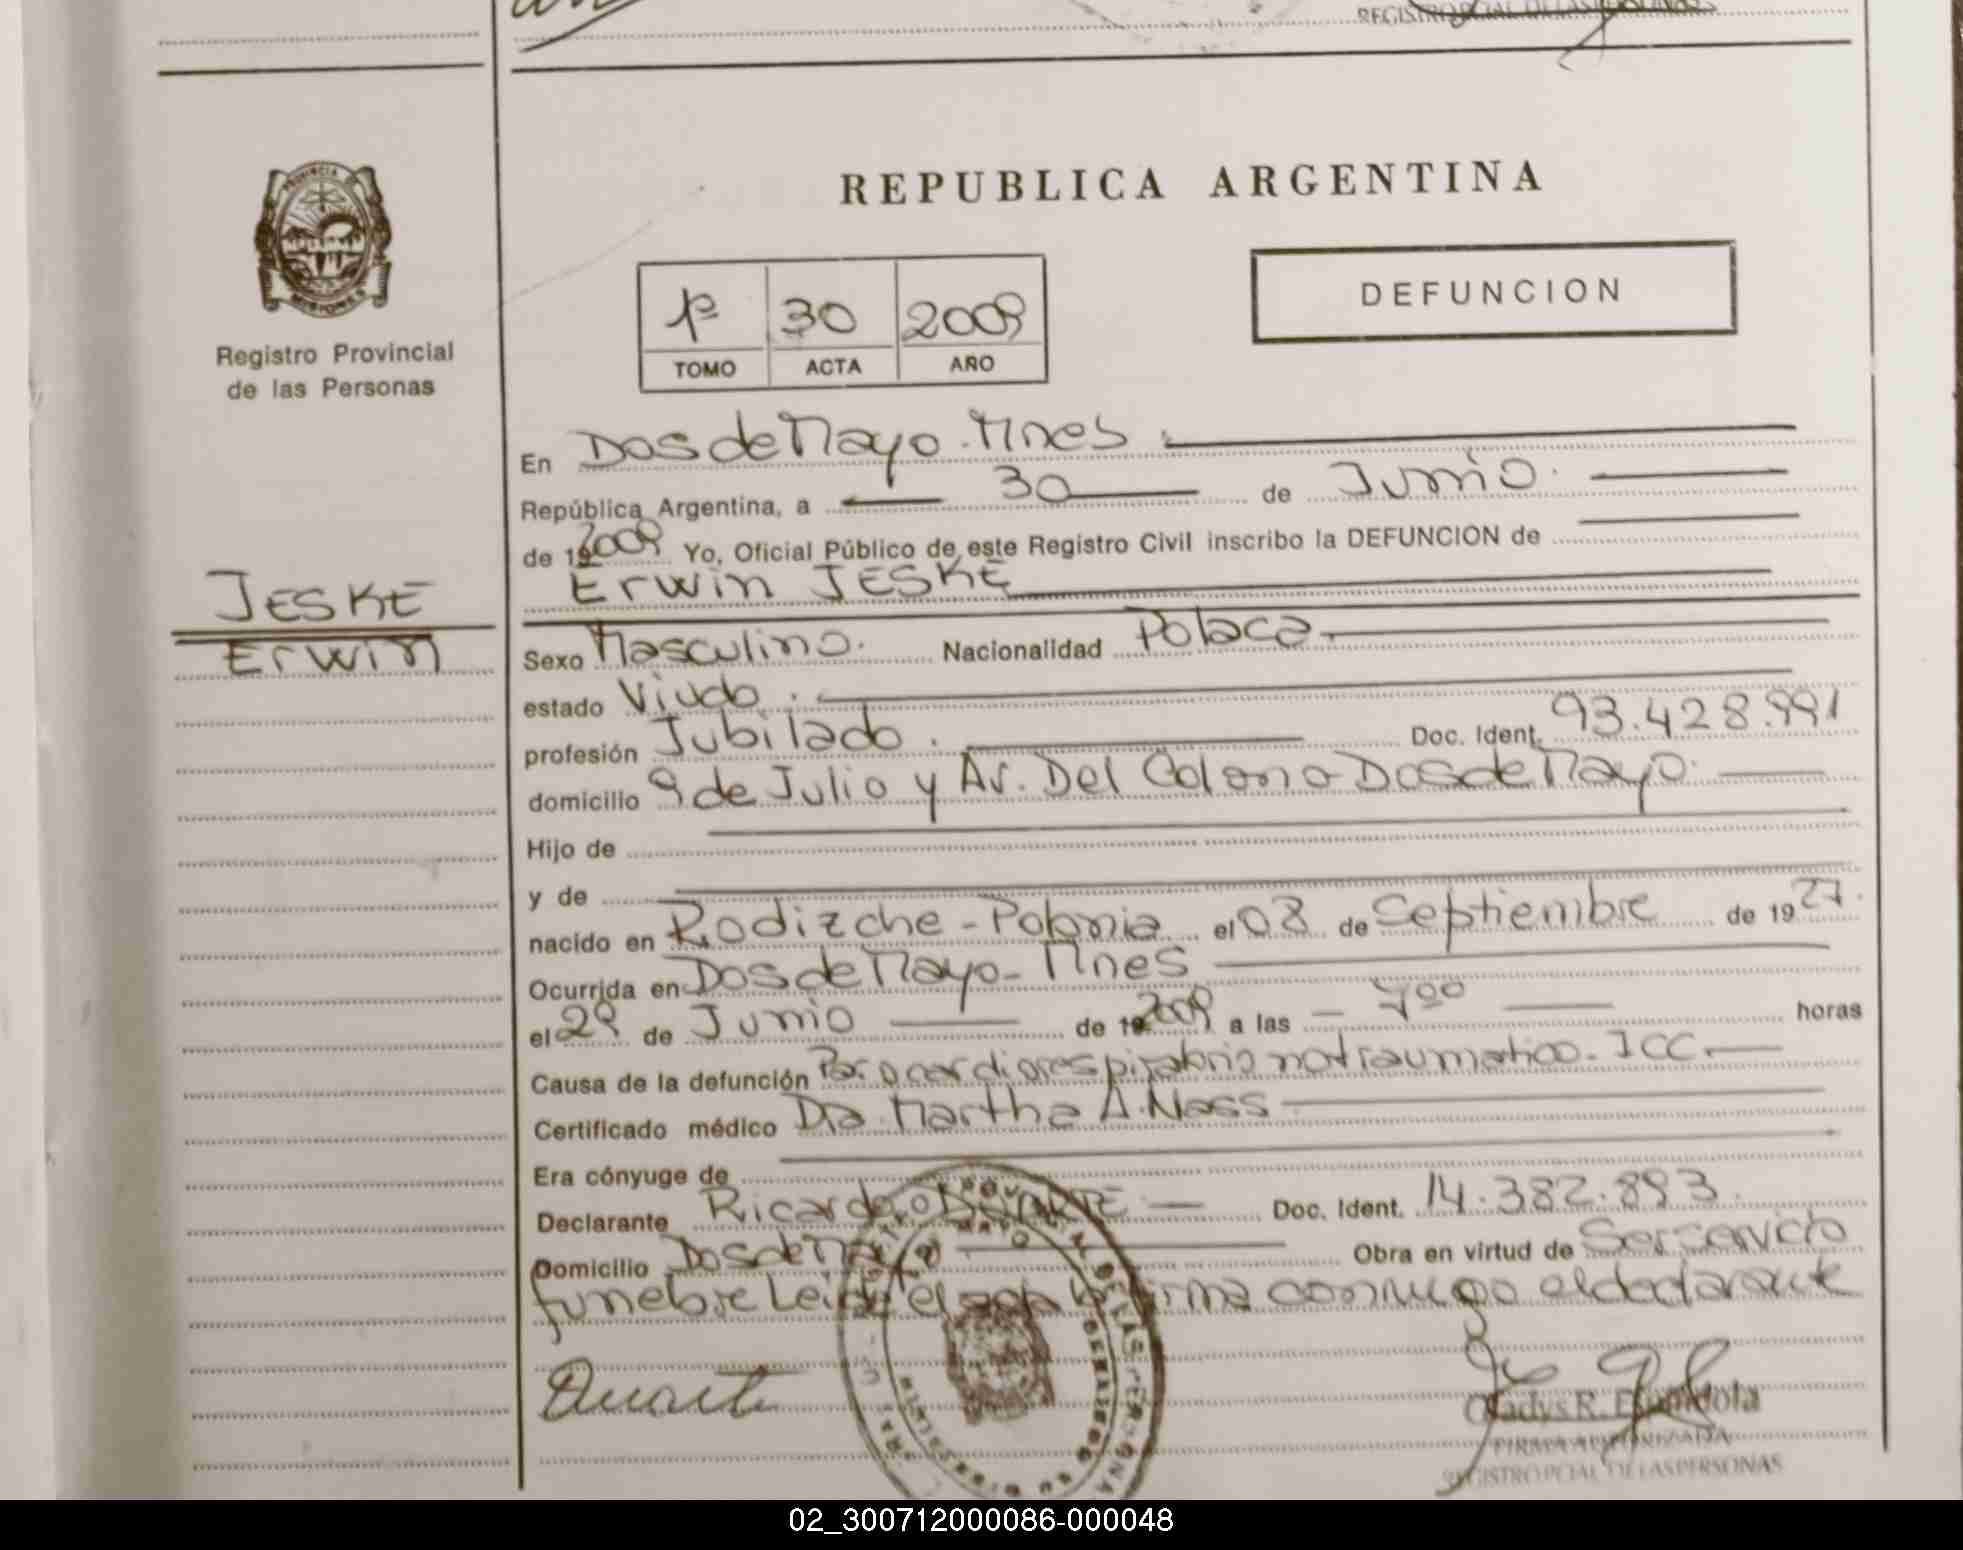 REGISTRO PCIAL. DE LAS PERSONAS
PROVINCIA DE
MISIONES
Registro Provincial
de las Personas
REPUBLICA ARGENTINA
1º 30 2009
TOMO ACTA AÑO
DEFUNCION
En Dos de Mayo. Mnes
República Argentina, a 30 de Junio.
de 19 2009 Yo, Oficial Público de este Registro Civil inscribo la DEFUNCION de
JESKE
Erwin
Erwin JESKE
Sexo Masculino. Nacionalidad Polaca.
estado Viudo.
profesión Jubilado. Doc. Ident. 93.428.991
domicilio 9 de Julio y Av. Del Colono Dos de Mayo.
Hijo de
y de
nacido en Rodizche - Polonia el 08 de Septiembre de 1927.
Ocurrida en Dos de Mayo - Mnes
el 29 de Junio de 19 2009 a las 7⁰⁰ horas
Causa de la defunción Paro cardiorespiratorio no traumatico. ICC.
Certificado médico Dra. Martha A. Ness
Era cónyuge de
Declarante Ricardo DUARTE Doc. Ident. 14.382.893.
Domicilio Dos de Mayo Obra en virtud de Ser servicio
funebre Leida el acta la firma conmigo el declarante
Duarte
Gladys R. Espindola
FIRMA AUTORIZADA
REGISTRO PCIAL. DE LAS PERSONAS
02_300712000086-000048